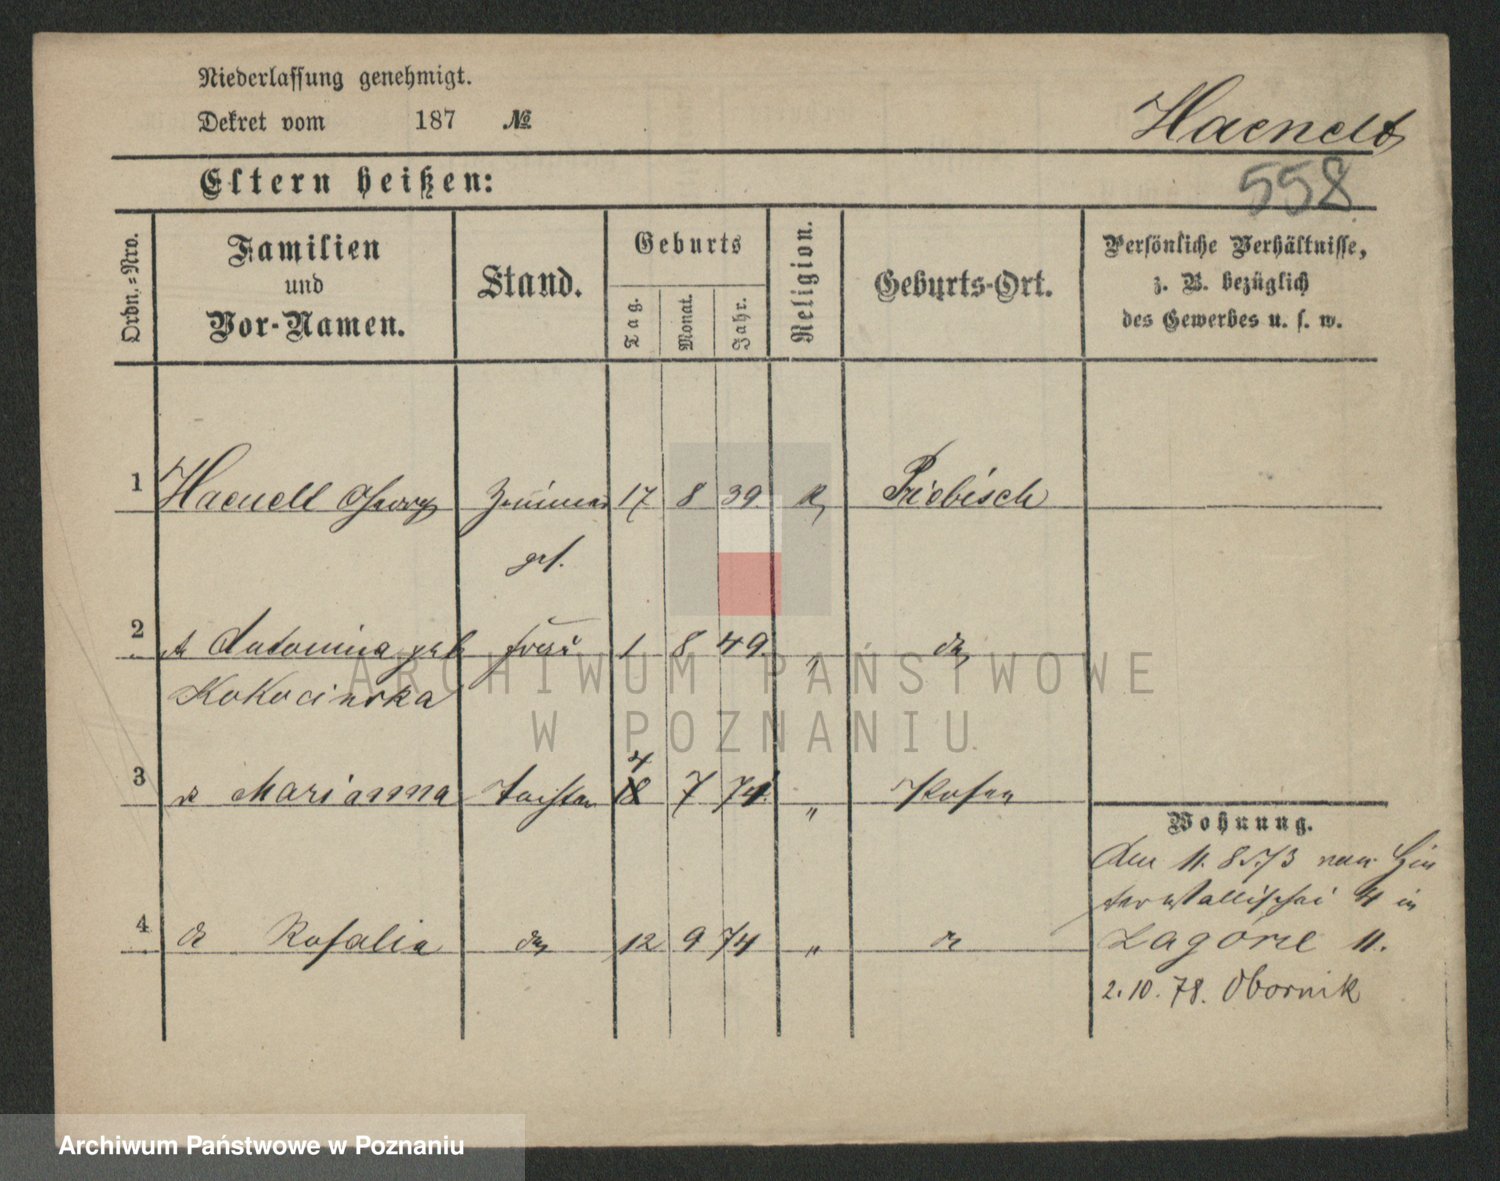 Niederlassung genehmigt.
Dekret vom 187 №
Haenelt
558
Eltern heißen:
Ordn.-Nro.
Familien
und
Vor-Namen.
Stand.
Geburts
Tag.
Monat.
Jahr.
Religion.
Geburts-Ort.
Persönliche Verhältnisse,
z. B. bezüglich
des Gewerbes u. s. w.
1 Haenelt Georg Zimmer 17 8 39. K Priebisch
ges.
2 Antonina geb Frau 1 8 49. " do
Kokocinska
4
3 do Marianna Tochter 18 7 74. " Posen
4 do Rosalia do 12 9 74 " do
Wohnung.
den 11. 8. 73 von Hin
ter Wallischei 4 in
Zagórze 11.
2. 10. 78. Obornik
ARCHIWUM PAŃSTWOWE
W POZNANIU
Archiwum Państwowe w Poznaniu